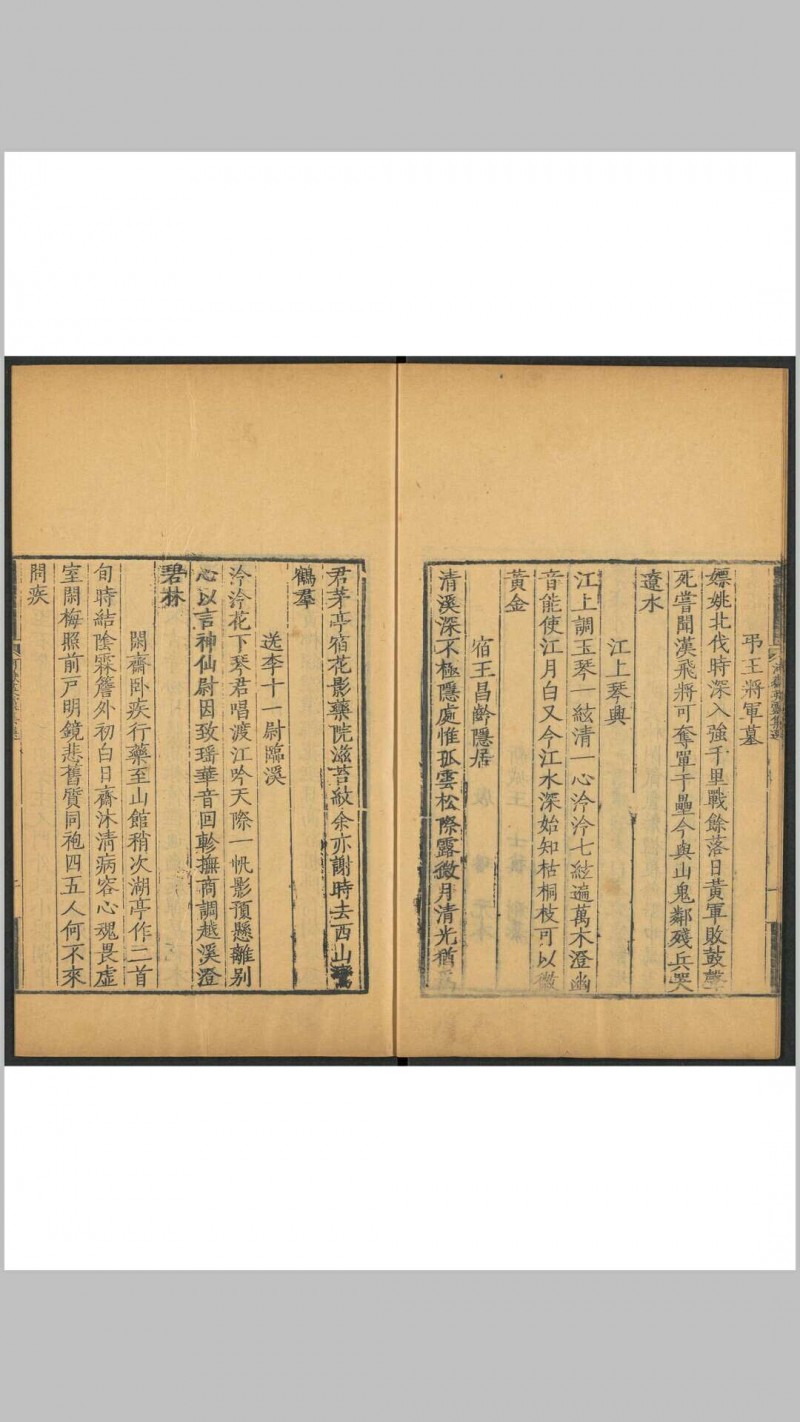 弔王將軍墓
嫖姚北伐時深入強千里戰餘落日黃軍敗鼓聲
死嘗聞漢飛將可奪單于壘今與山鬼鄰殘兵哭
遼水
江上琴興
江上調玉琴一絃清一心泠泠七絃遍萬木澄幽
音能使江月白又令江水深始知枯桐枝可以徽
黃金
宿王昌齡隱居
清溪深不極隱處惟孤雲松際露微月清光猶
君茅亭宿花影藥院滋苔紋余亦謝時去西山鸞
鶴羣
送李十一尉臨溪
泠泠花下琴君唱渡江吟天際一帆影預懸離別
心以言神仙尉因致瑤華音回軫撫商調越溪澄
碧林
閑齋卧疾行藥至山館稍次湖亭作二首
旬時結陰霖簷外初白日齋沐清病容心魂畏虛
室閑梅照前戶明鏡悲舊質同袍四五人何不來
問疾